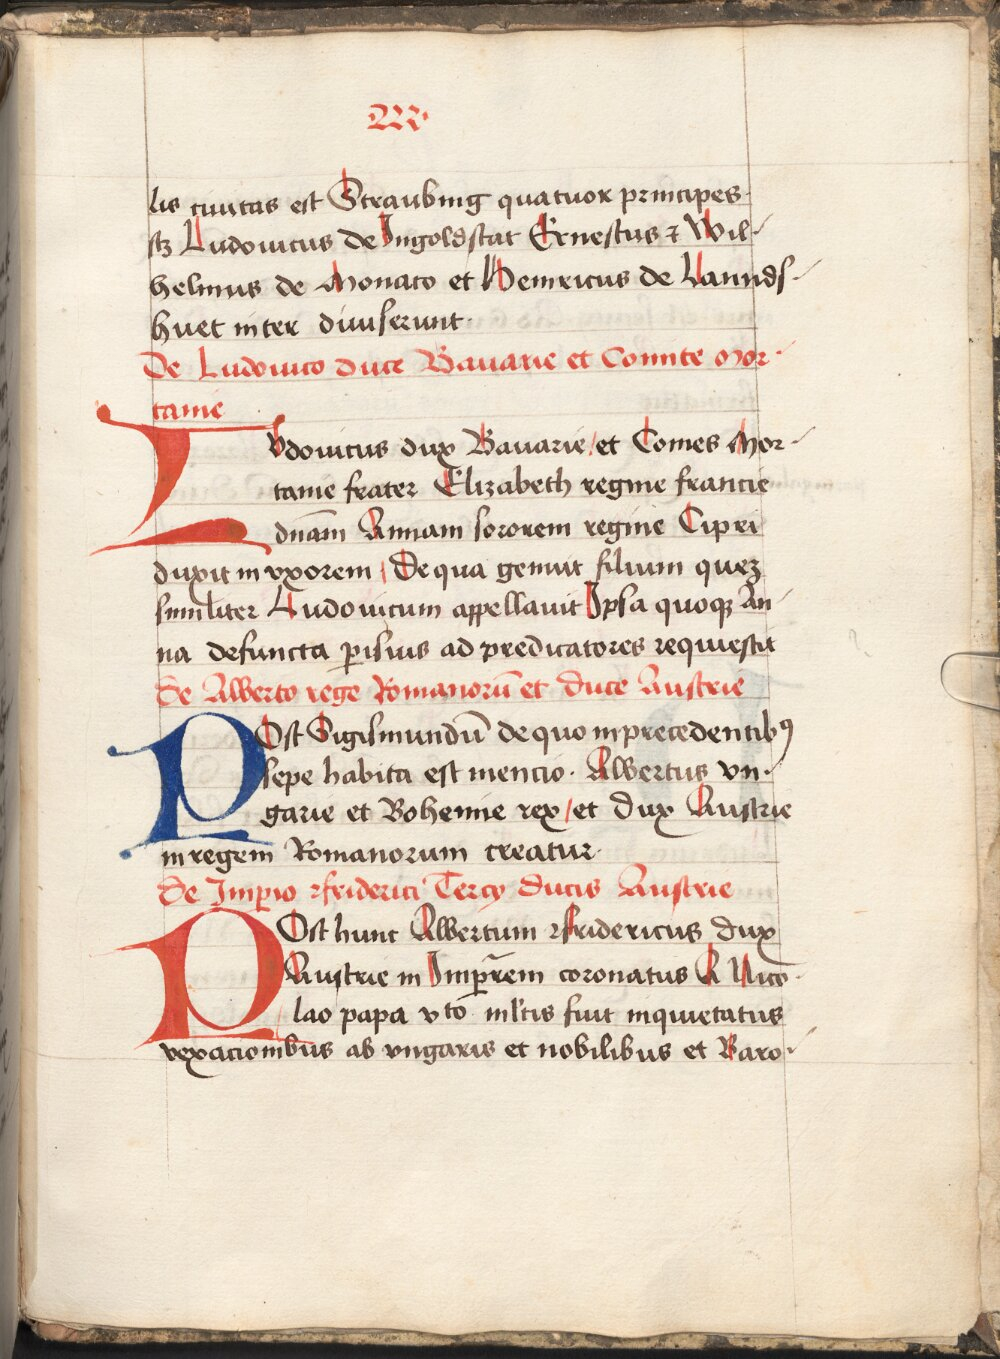 lis ciuitas est Straubing quatuor principes
sꝫ Ludouicus de Ingoldstat Ernestus ⁊ Wil-
helmus de Monaco et Heinricus de Lannds-
huet inter diuiserunt.
De Ludouico duce Bauarie et Comite Mor-
tanie
LVdouicus dux Bauarie / et Comes Mor-
tanie frater Elizabeth regine francie
dnām Annam sororem regine Cipri
duxit in vxorem / De qua genuit filium queꝫ
similiter Ludouicum appellauit Ipsa quoqꝫ An-
na defuncta ꝑisius ad predicatores requiescit
De Alberto rege Romanorū et duce Austrie
POst Sigismundū de quo in precedentibꝯ
sepe habita est mencio. Albertus vn-
garie et Bohemie rex / et dux Austrie
in regem Romanorum creatur.
De Imꝑio friderici Tercij ducis Austrie
POst hunc Albertum fridericus dux
Austrie in Imꝑr̄em coronatus A Nico-
lao papa vto ml'tis fuit inquietatus
vexacionibus ab vngaris et nobilibus et Baro-